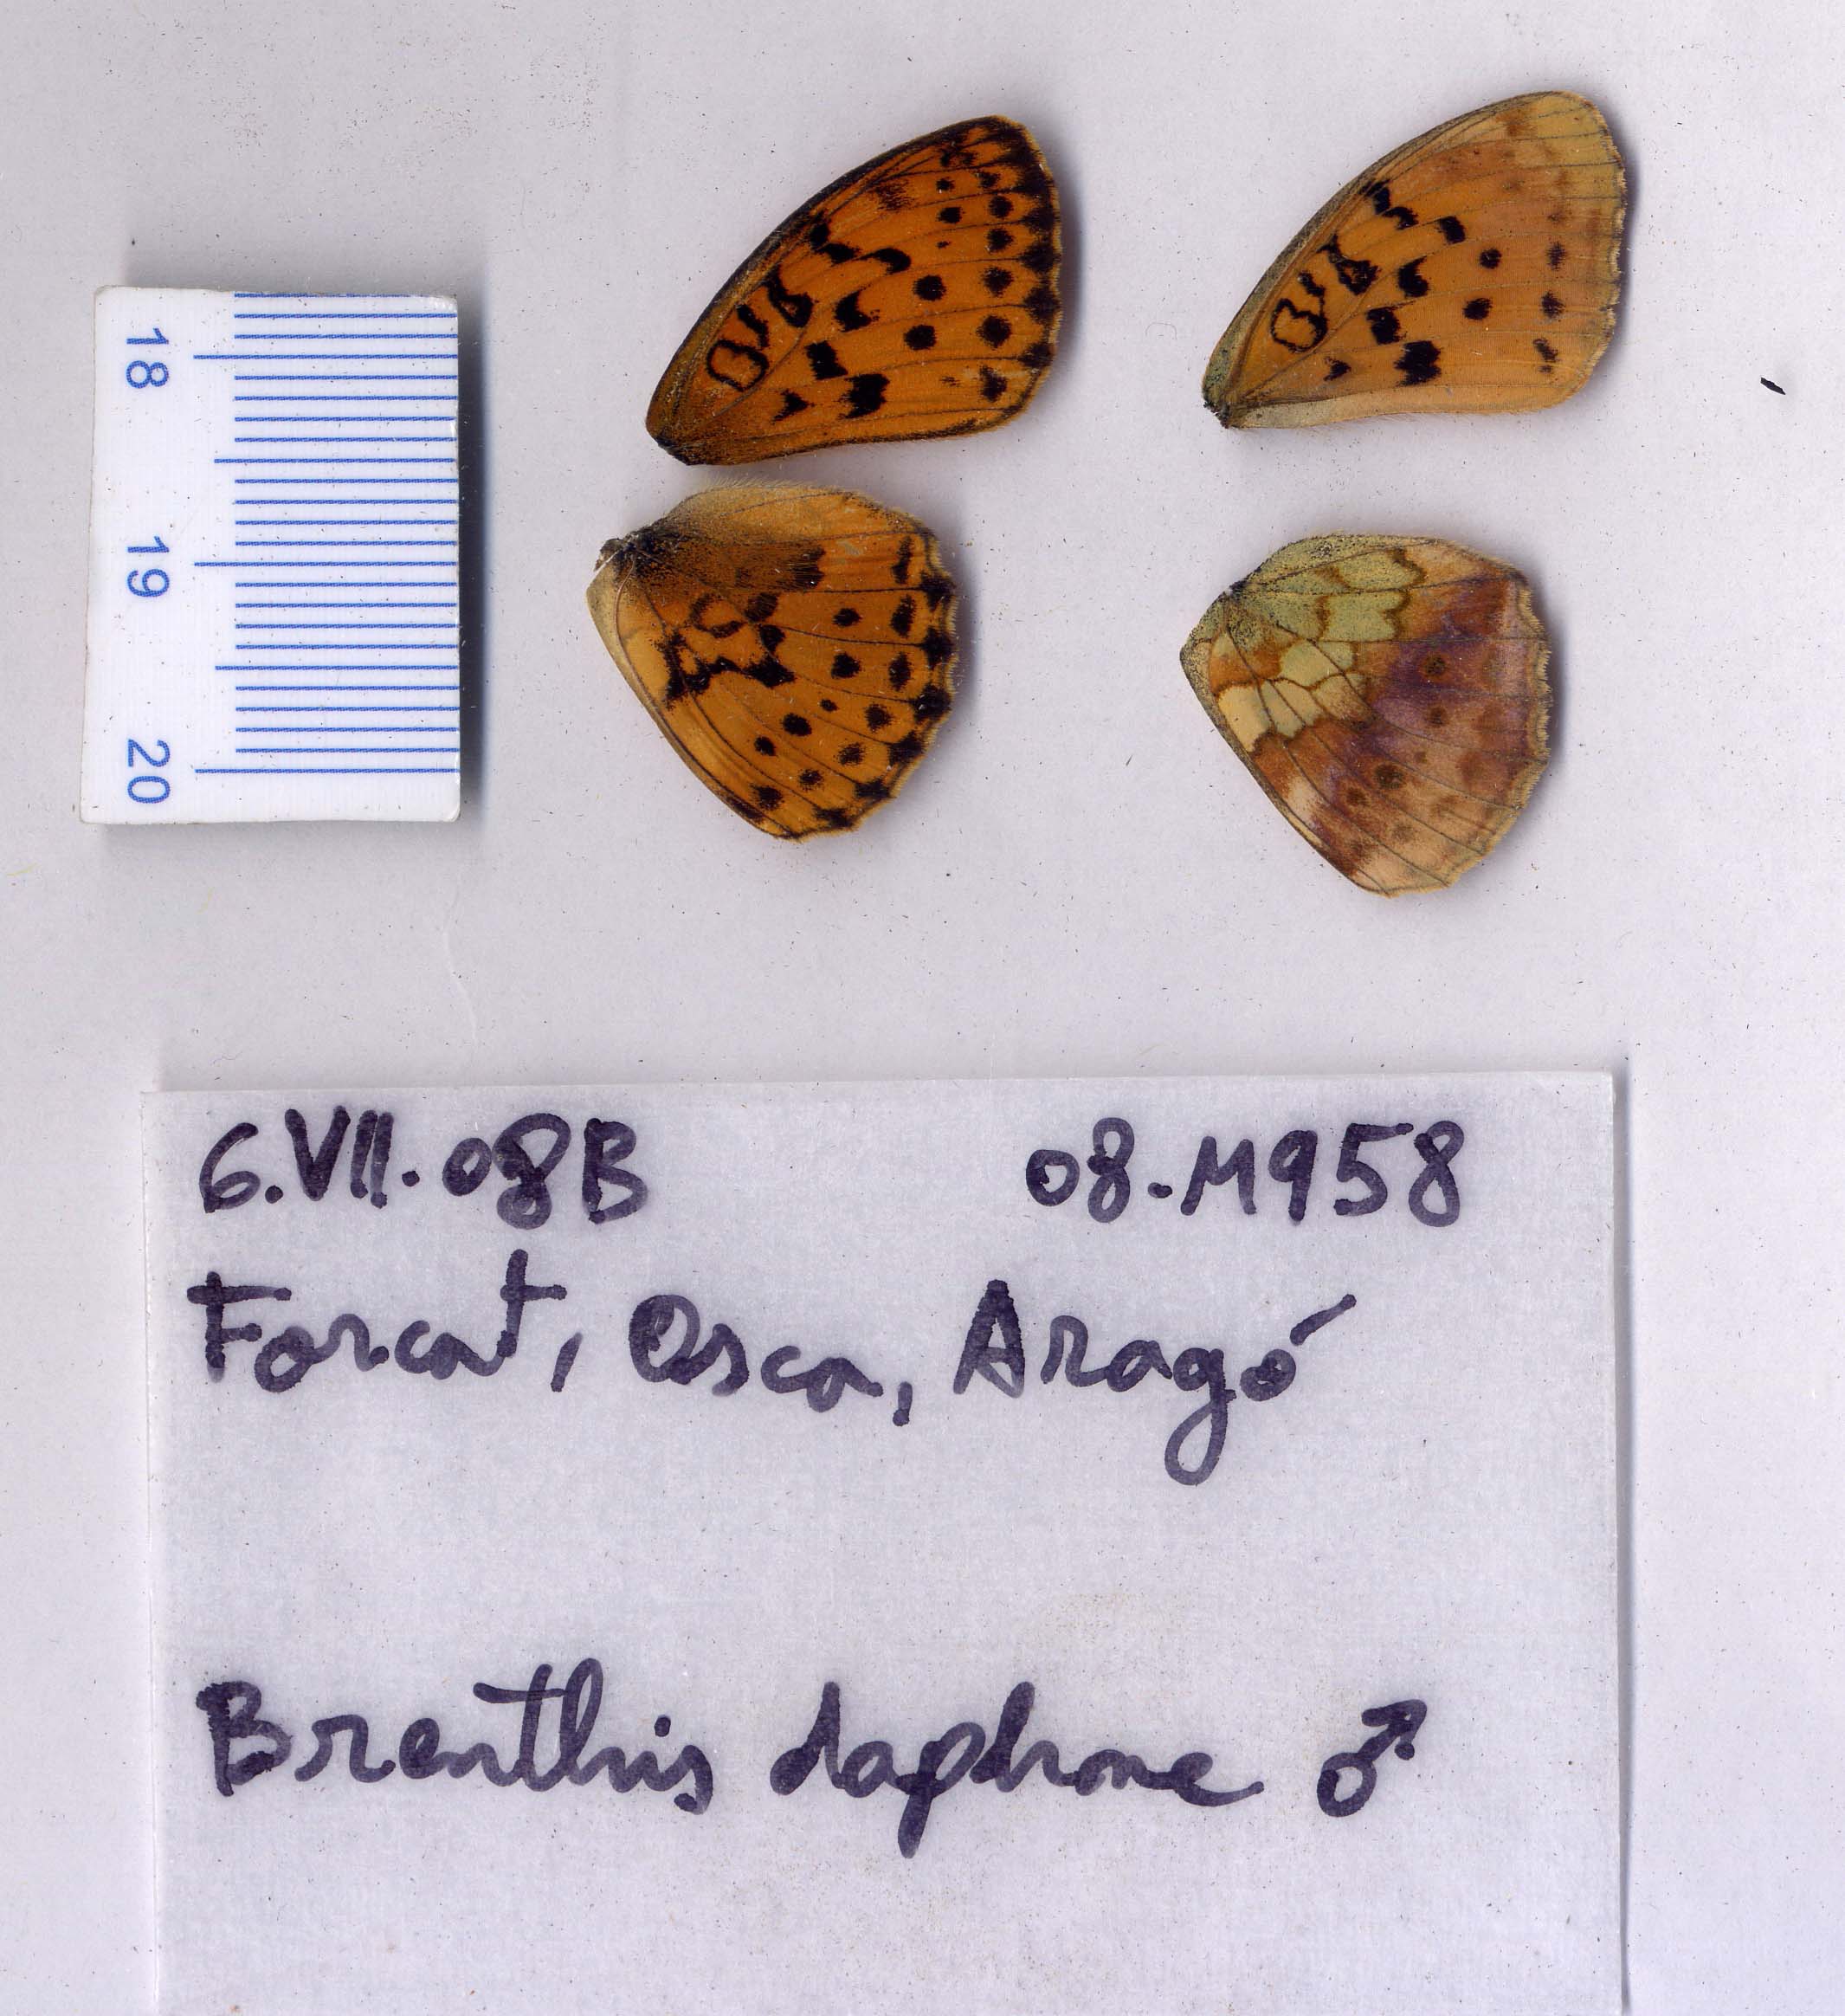 18
19
20
6.VII.08B 08.M958
Forcat, Osca, Aragó
Brenthis daphne ♂